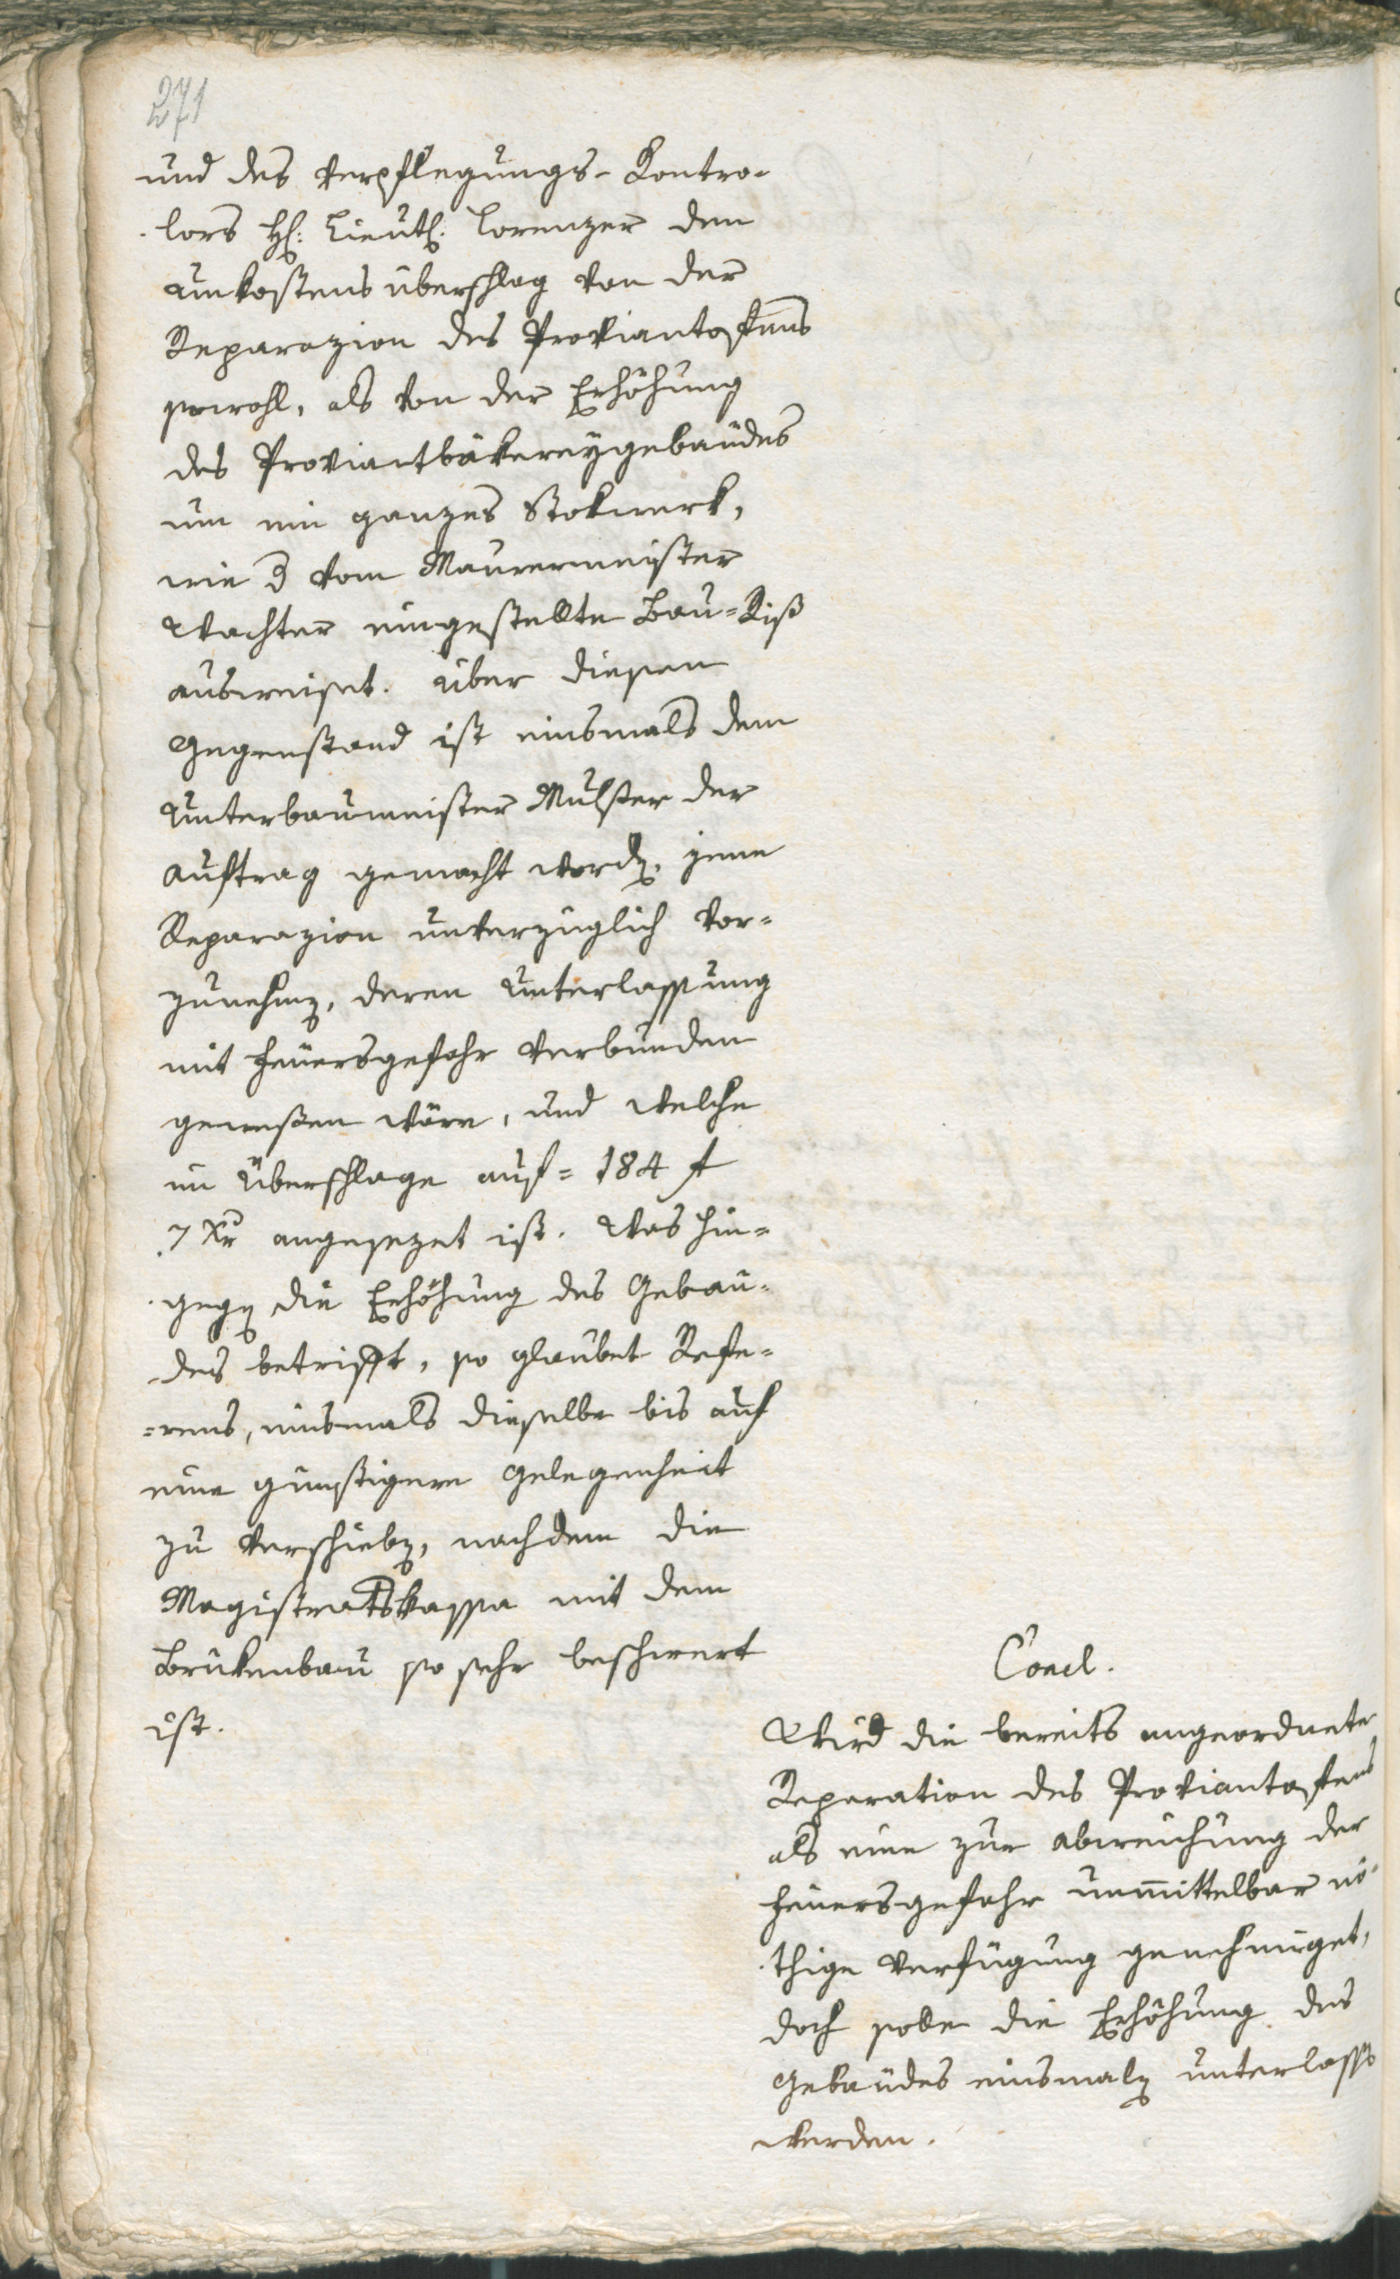 271
und des Verpflegungs-Kontro-
lors H: Lieut. Lorenzer den
Unkostens überschlag von der
Reparazion des Proviantofens
sowohl, als von der Erhöhung
des Proviantbäkereygebäudes
um ein ganzes Stokwerk,
wie  vom Maurermeister
Wachter eingestellte Bau=Riß
ausweiset. Über diesen
Gegenstand ist einsmals dem
Unterbaumeister  der
Auftrag gemacht word, jene
Reparazion unverzüglich vor=
zunehm, deren Unterlassung
mit Feuersgefahr verbunden
geweßen wäre, und welche
im Überschlage auf= 184 f
7 Xr angesezet ist. Was hin=
geg die Erhöhung des Gebäu=
des betrifft, so glaubet Refe=
=rens, einsmals dieselbe bis auf
eine günstigere Gelegenheit
zu verschieb, nachdem die
Magistratskassa mit dem
Brükenbau so sehr beschwert
ist.
Concl.
Wird die bereits angeordnete
Reparation des Proviantofens
als eine zur Abweichung der
Feuersgefahr unmittelbar nö=
thige Verfügung genehmiget,
doch solle die Erhöhung des
Gebäudes einsmal unterlass
werden.